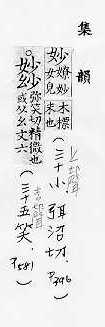 集韻
妙嫽妙女皃木標末也
(三十小.弭沼切.P396)
上聲
妙彌笑切精微也或从幺文六
(三十五笑.P581)
去聲